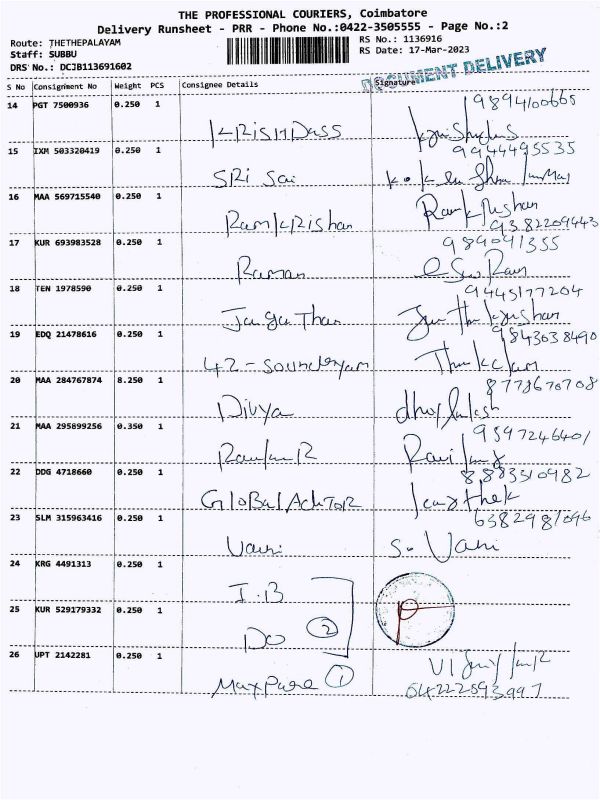 THE PROFESSIONAL COURIERS, Coimbatore
Delivery Runsheet - PRR - Phone No.:0422-3505555 - Page No.:2
Route: THETHEPALAYAM RS No.: 1136916
Staff: SUBBU RS Date: 17-Mar-2023
DRS No.: DCJB113691602
DOCUMENT DELIVERY
S No Consignment No Weight PCS Consignee Details Signature
14 PGT 7500936 0.250 1 9894100665
KRISHDASS
15 IXM 503320419 0.250 1 9944495535
SRI Sai
16 MAA 569715540 0.250 1
RamKRishan 9382209443
17 KUR 693983528 0.250 1
Raman
18 TEN 1978590 0.250 1 9445177204
19 EDQ 21478616 0.250 1 9843038490
42-Soundryam
20 MAA 284767874 8.250 1 8778670708
Divya
21 MAA 295899256 0.350 1 9597246401
22 DDG 4718660 0.250 1 8883310982
23 SLM 315963416 0.250 1 6382981096
Vani S. Vani
24 KRG 4491313 0.250
I.B
25 KUR 529179332 0.250
Do 2
26 UPT 2142281 0.250 1
MaxPure 1